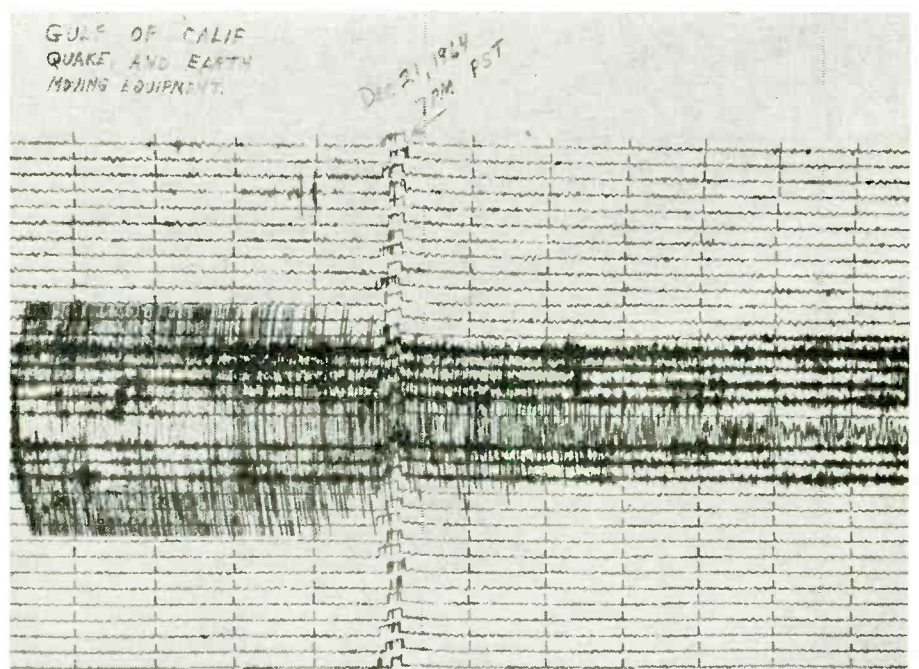 GULF OF CALIF
QUAKE, AND EARTH
MOVING EQUIPMENT.
DEC 21, 1964
7 PM PST